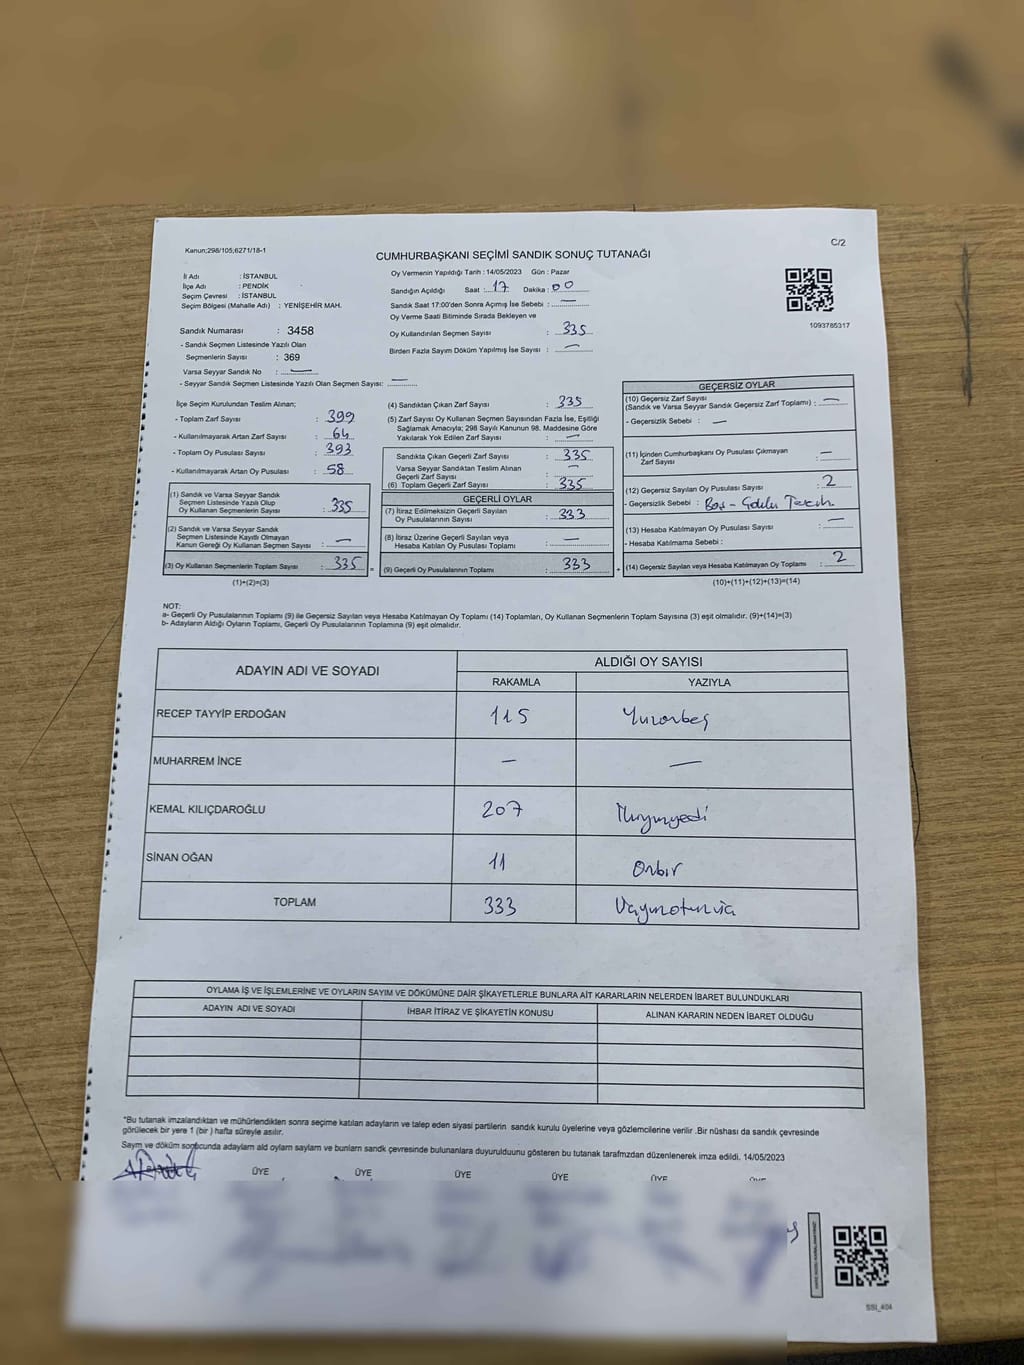 Kanun;298/105;6271/18-1
C/2
CUMHURBAŞKANI SEÇİMİ SANDIK SONUÇ TUTANAĞI
İl Adı : İSTANBUL
İlçe Adı : PENDİK
Seçim Çevresi : İSTANBUL
Seçim Bölgesi (Mahalle Adı) : YENİŞEHİR MAH.
Oy Vermenin Yapıldığı Tarih : 14/05/2023 Gün : Pazar
Sandığın Açıldığı Saat : 17 Dakika : 00
Sandık Saat 17:00'den Sonra Açılmış İse Sebebi : —
Oy Verme Saati Bitiminde Sırada Bekleyen ve
Oy Kullandırılan Seçmen Sayısı : 335
Birden Fazla Sayım Döküm Yapılmış İse Sayısı : —
1093785317
Sandık Numarası : 3458
- Sandık Seçmen Listesinde Yazılı Olan
Seçmenlerin Sayısı : 369
Varsa Seyyar Sandık No : —
- Seyyar Sandık Seçmen Listesinde Yazılı Olan Seçmen Sayısı: —
İlçe Seçim Kurulundan Teslim Alınan;
- Toplam Zarf Sayısı : 399
- Kullanılmayarak Artan Zarf Sayısı : 64
- Toplam Oy Pusulası Sayısı : 393
- Kullanılmayarak Artan Oy Pusulası : 58
(1) Sandık ve Varsa Seyyar Sandık
Seçmen Listesinde Yazılı Olup
Oy Kullanan Seçmenlerin Sayısı : 335
(2) Sandık ve Varsa Seyyar Sandık
Seçmen Listesinde Kayıtlı Olmayan
Kanun Gereği Oy Kullanan Seçmen Sayısı : —
(3) Oy Kullanan Seçmenlerin Toplam Sayısı : 335 =
(1)+(2)=(3)
(4) Sandıktan Çıkan Zarf Sayısı : 335
(5) Zarf Sayısı Oy Kullanan Seçmen Sayısından Fazla İse, Eşitliği
Sağlamak Amacıyla; 298 Sayılı Kanunun 98. Maddesine Göre
Yakılarak Yok Edilen Zarf Sayısı : —
Sandıkta Çıkan Geçerli Zarf Sayısı : 335
Varsa Seyyar Sandıktan Teslim Alınan
Geçerli Zarf Sayısı : —
(6) Toplam Geçerli Zarf Sayısı : 335
GEÇERLİ OYLAR
(7) İtiraz Edilmeksizin Geçerli Sayılan
Oy Pusulalarının Sayısı : 333
(8) İtiraz Üzerine Geçerli Sayılan veya
Hesaba Katılan Oy Pusulası Toplamı : —
(9) Geçerli Oy Pusulalarının Toplamı : 333 +
GEÇERSİZ OYLAR
(10) Geçersiz Zarf Sayısı
(Sandık ve Varsa Seyyar Sandık Geçersiz Zarf Toplamı) : —
- Geçersizlik Sebebi : —
(11) İçinden Cumhurbaşkanı Oy Pusulası Çıkmayan
Zarf Sayısı : —
(12) Geçersiz Sayılan Oy Pusulası Sayısı : 2
- Geçersizlik Sebebi : Boş -
(13) Hesaba Katılmayan Oy Pusulası Sayısı : —
- Hesaba Katılmama Sebebi :
(14) Geçersiz Sayılan veya Hesaba Katılmayan Oy Toplamı : 2
(10)+(11)+(12)+(13)=(14)
NOT:
a- Geçerli Oy Pusulalarının Toplamı (9) ile Geçersiz Sayılan veya Hesaba Katılmayan Oy Toplamı (14) Toplamları, Oy Kullanan Seçmenlerin Toplam Sayısına (3) eşit olmalıdır. (9)+(14)=(3)
b- Adayların Aldığı Oyların Toplamı, Geçerli Oy Pusulalarının Toplamına (9) eşit olmalıdır.
ADAYIN ADI VE SOYADI ALDIĞI OY SAYISI
RAKAMLA YAZIYLA
RECEP TAYYİP ERDOĞAN 115
MUHARREM İNCE — —
KEMAL KILIÇDAROĞLU 207
SİNAN OĞAN 11 Onbir
TOPLAM 333
OYLAMA İŞ VE İŞLEMLERİNE VE OYLARIN SAYIM VE DÖKÜMÜNE DAİR ŞİKAYETLERLE BUNLARA AİT KARARLARIN NELERDEN İBARET BULUNDUKLARI
ADAYIN ADI VE SOYADI İHBAR İTİRAZ VE ŞİKAYETİN KONUSU ALINAN KARARIN NEDEN İBARET OLDUĞU
"Bu tutanak imzalandıktan ve mühürlendikten sonra seçime katılan adayların ve talep eden siyasi partilerin sandık kurulu üyelerine veya gözlemcilerine verilir .Bir nüshası da sandık çevresinde
görülecek bir yere 1 (bir ) hafta süreyle asılır.
Sayım ve döküm sonucunda adayların ald oyların sayların ve bunların sandk çevresinde bulunanlara duyurulduunu gösteren bu tutanak tarafmzdan düzenlenerek imza edildi. 14/05/2023
ÜYE ÜYE ÜYE ÜYE ÜYE ÜYE
SSI_404